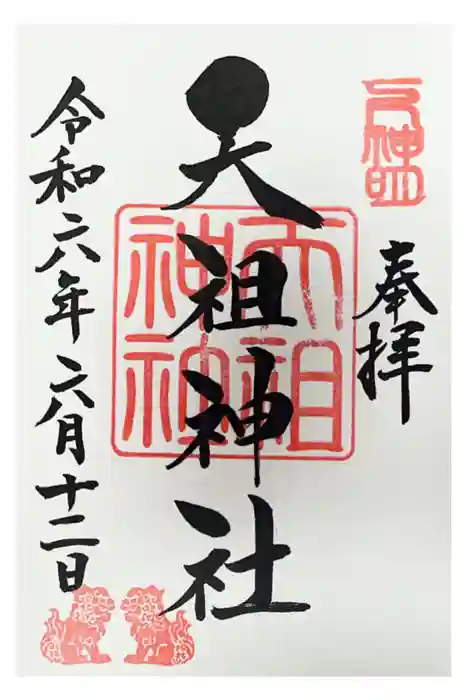 奉拝
天祖神社
天祖神社
令和六年六月十二日